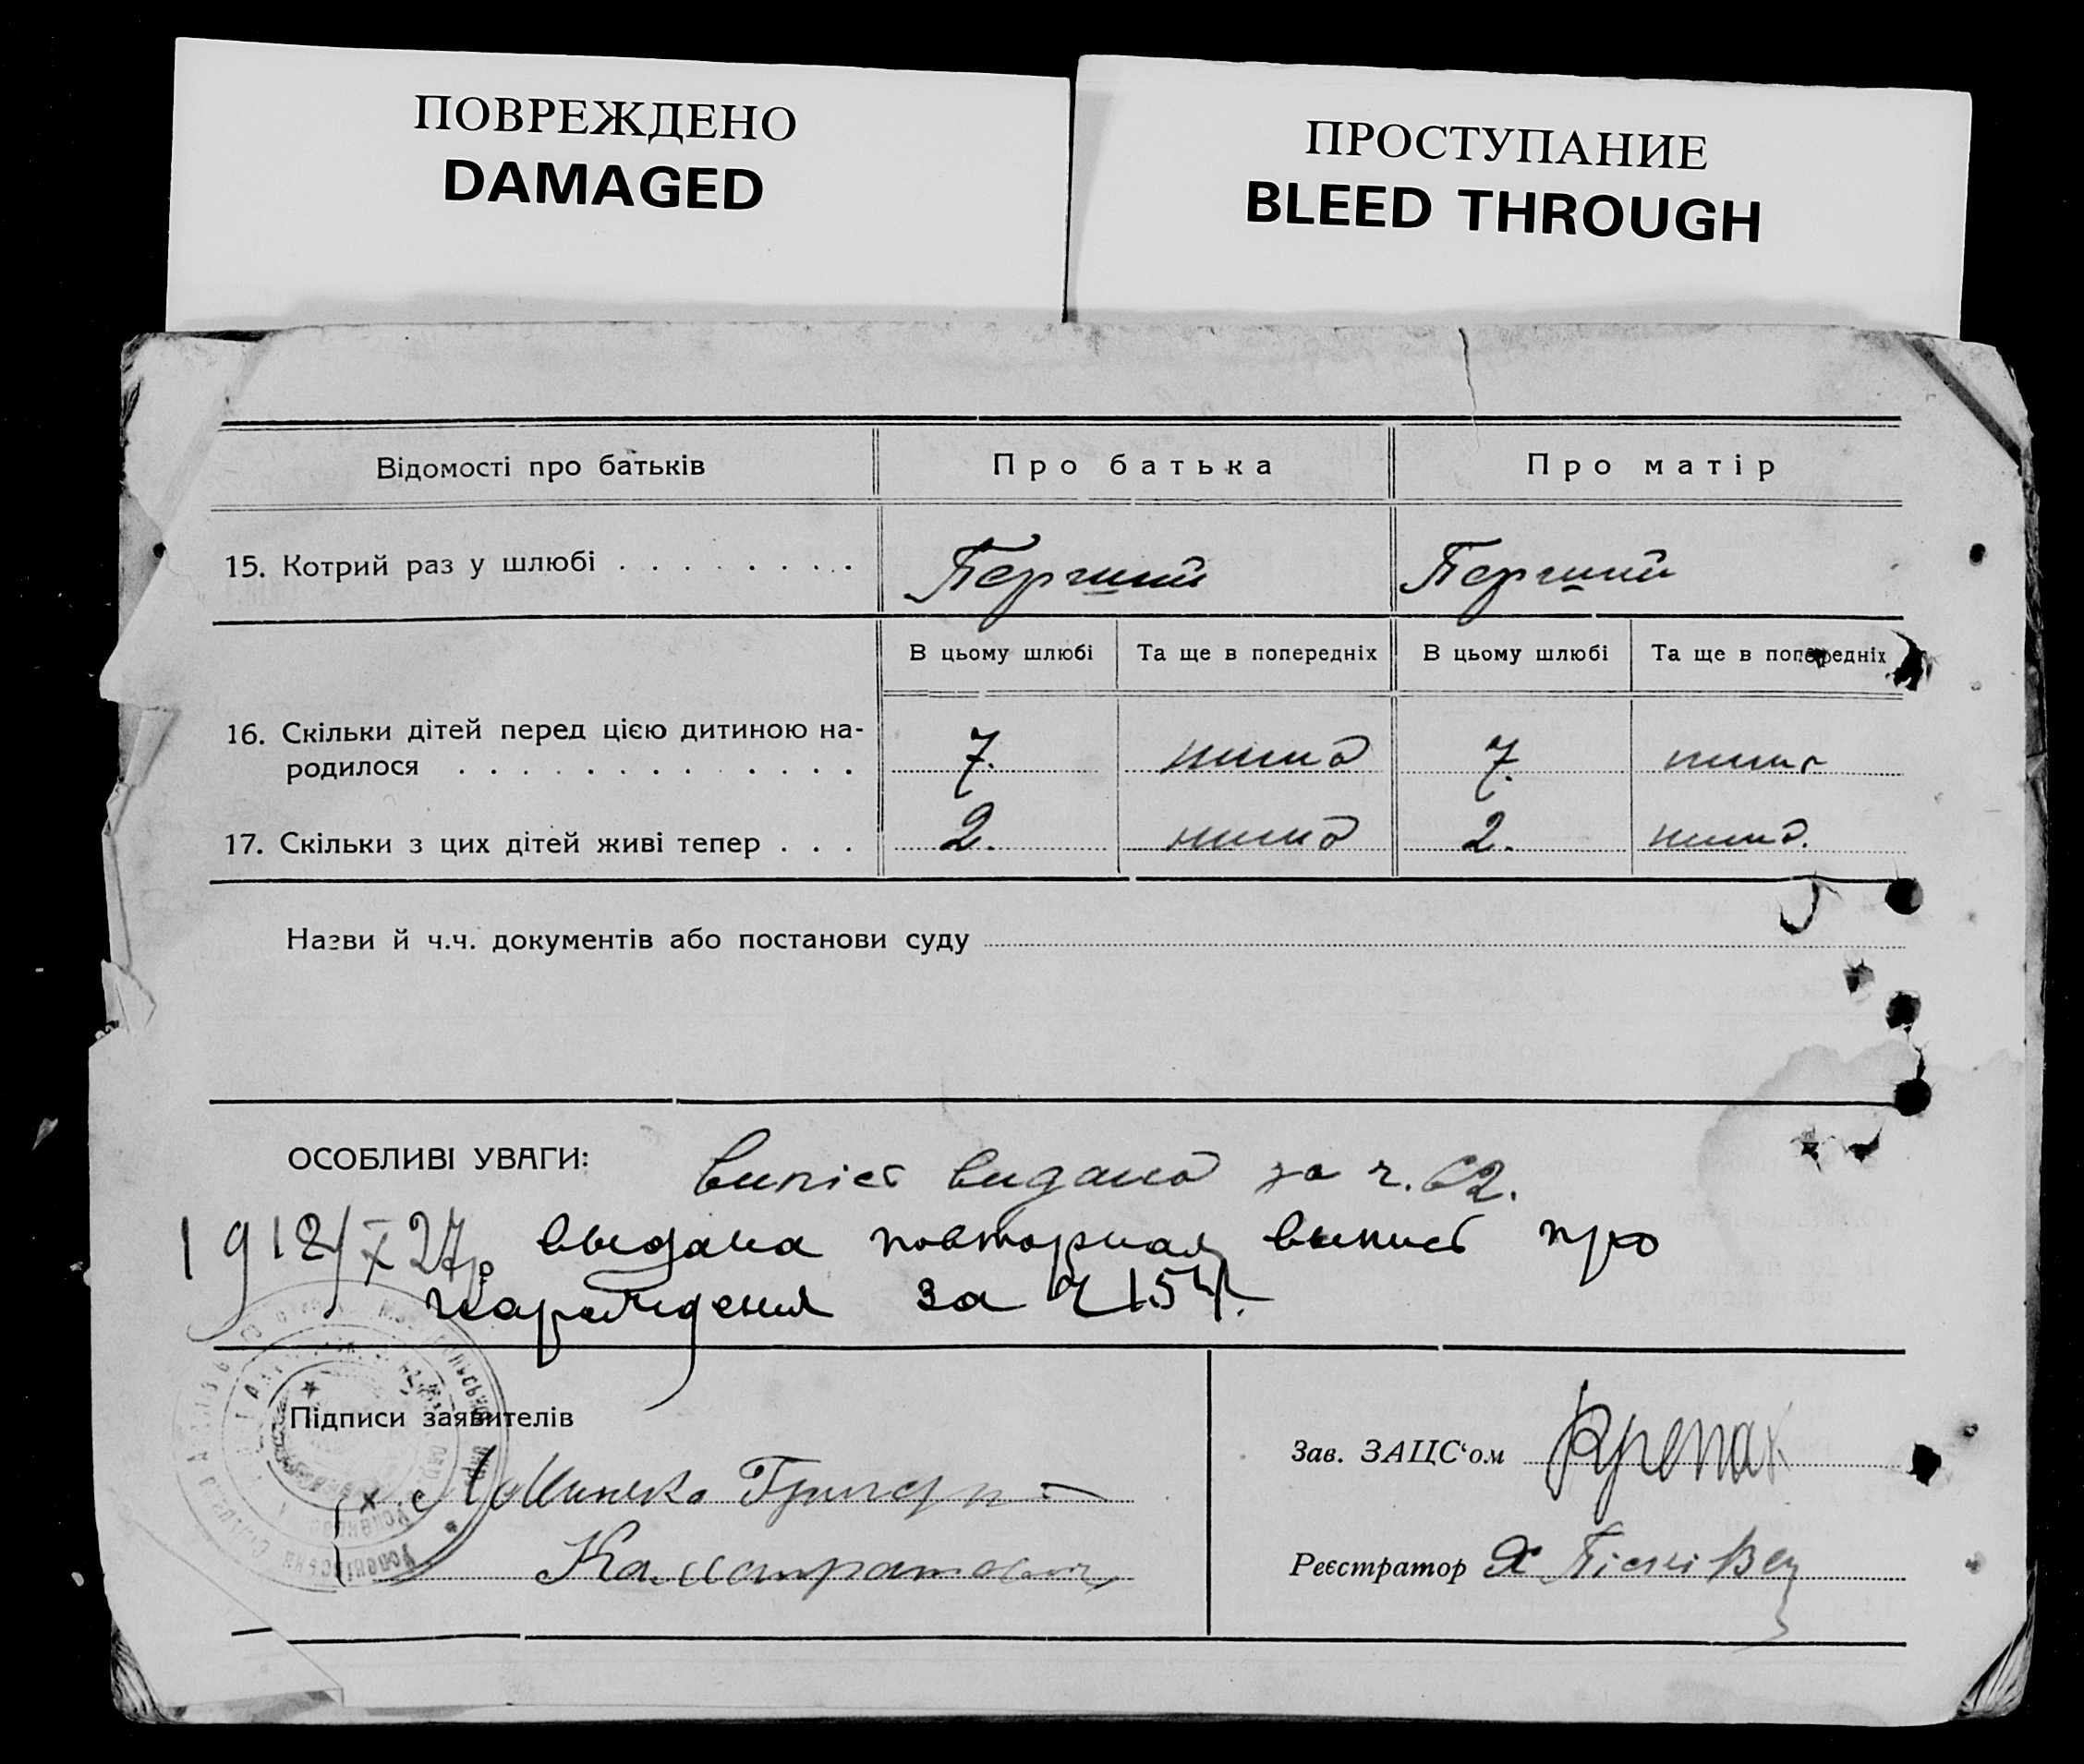 ПОВРЕЖДЕНО
DAMAGED
ПРОСТУПАНИЕ
BLEED THROUGH
Відомості про батьків
Про батька
Про матір
15. Котрий раз у шлюбі . . . . . . . . .
Перший
Перший
В цьому шлюбі
Та ще в попередніх
В цьому шлюбі
Та ще в попередніх
16. Скільки дітей перед цією дитиною на-
родилося . . . . . . . . . . . . .
7.
нима
7.
нима
17. Скільки з цих дітей живі тепер . . .
2.
нима
2.
нима.
Назви й ч.ч. документів або постанови суду
ОСОБЛИВІ УВАГИ:
Випіс видано за ч. 62.
видана повторная выпись про
за ч 154.
Підписи заявителів
Калистратович
Зав. ЗАЦС‘ом
Крепак
Реєстратор